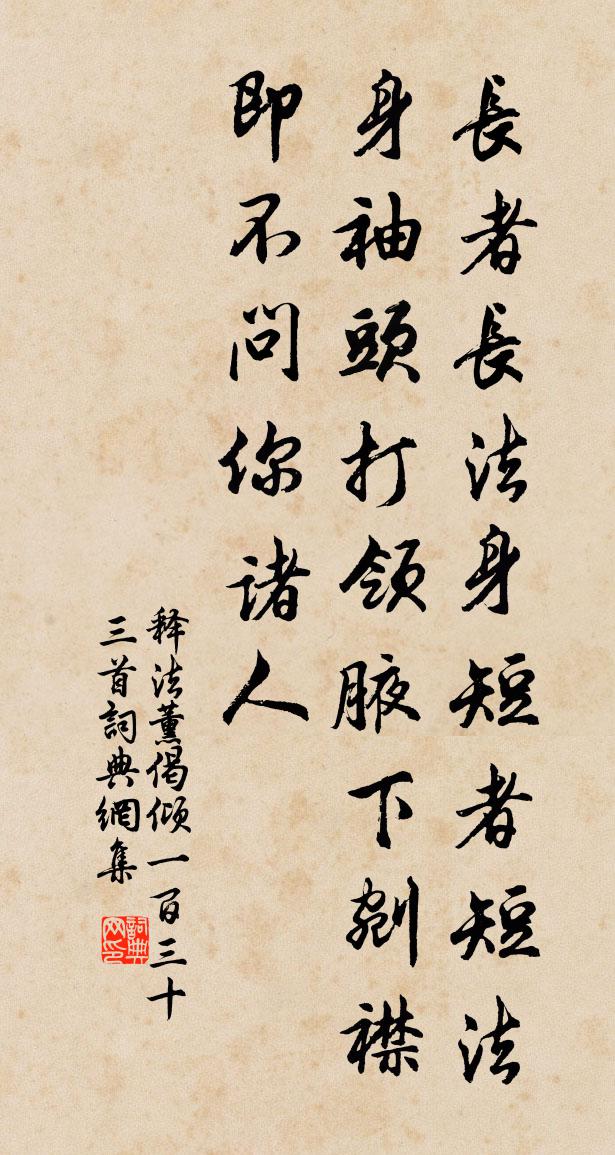 長者長法身短者短法
身袖頭打領腋下剜襟
即不問你諸人
释法薰偈倾一百三十
三首詞典網集
詞典
网印